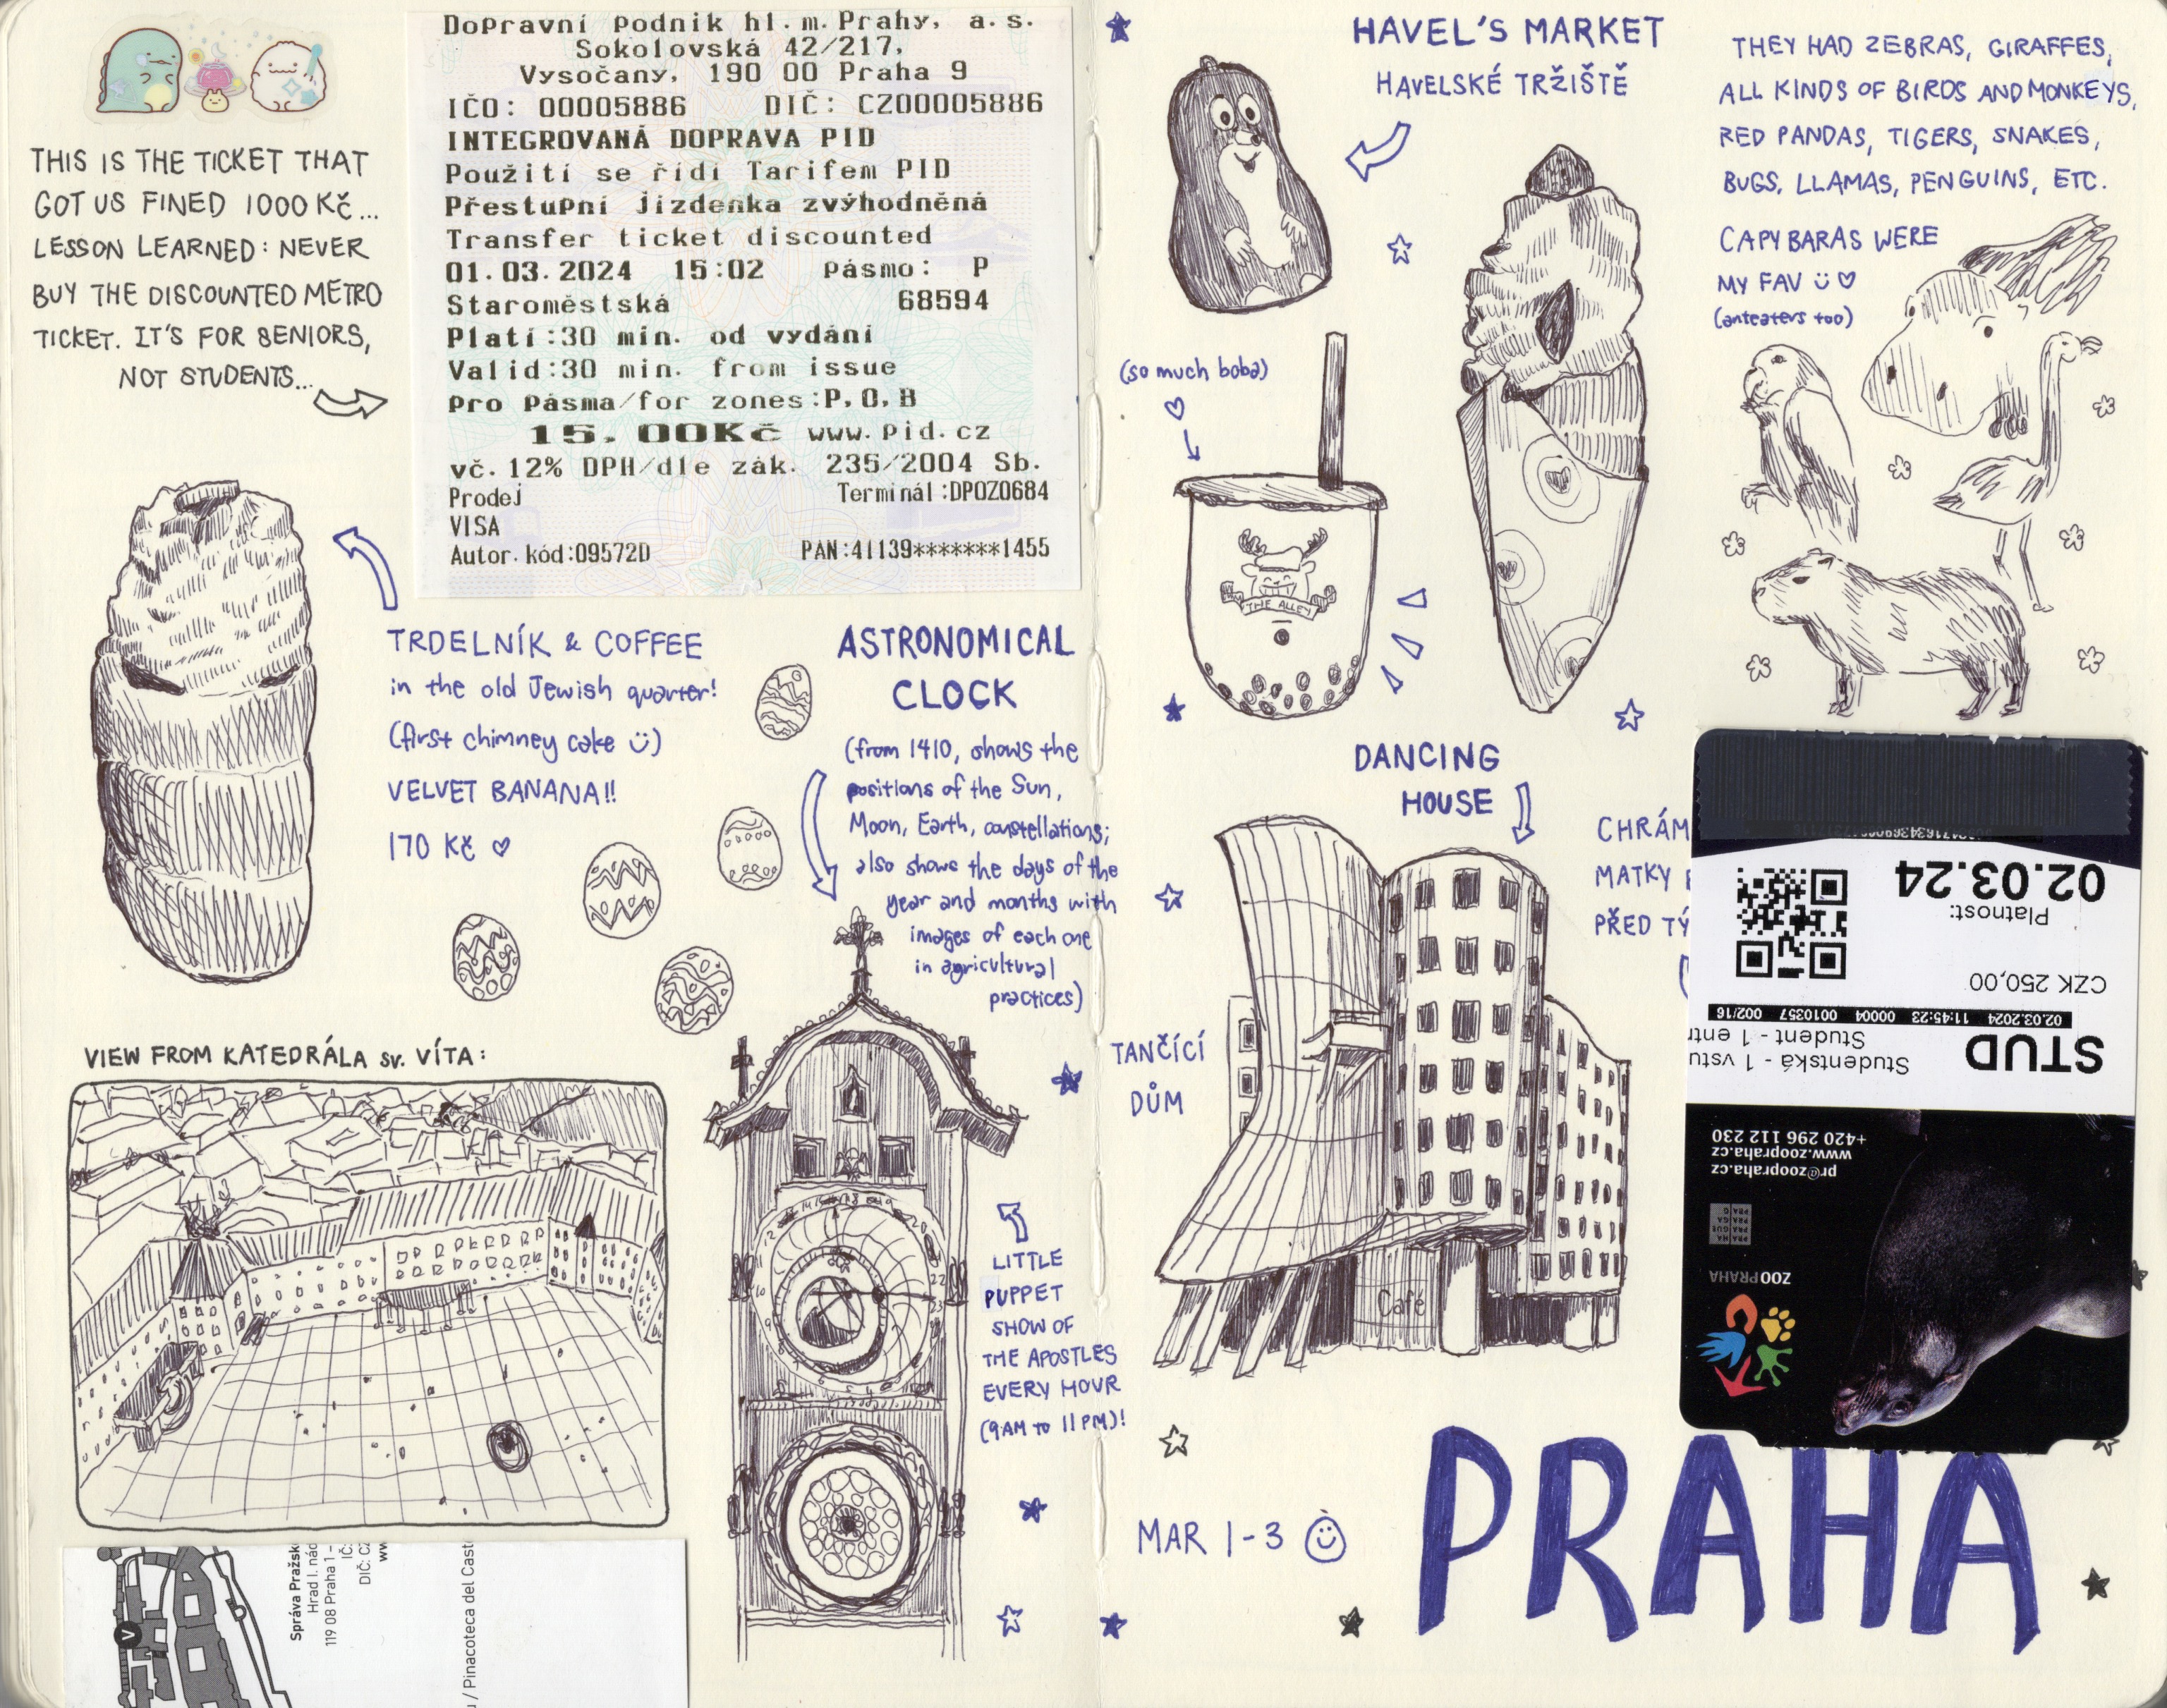 THIS IS THE TICKET THAT
GOT US FINED 1000 Kč...
LESSON LEARNED: NEVER
BUY THE DISCOUNTED METRO
TICKET. IT'S FOR SENIORS,
NOT STUDENTS...
Dopravní podnik hl.m.Prahy, a.s.
Sokolovská 42/217,
Vysočany, 190 00 Praha 9
IČO: 00005886 DIČ: CZ00005886
INTEGROVANÁ DOPRAVA PID
Použití se řídí Tarifem PID
Přestupní jízdenka zvýhodněná
Transfer ticket discounted
01.03.2024 15:02 pásmo: P
Staroměstská 68594
Platí:30 min. od vydání
Valid:30 min. from issue
Pro pásma/for zones:P,0,B
15,00Kč www.pid.cz
vč.12% DPH/dle zák. 235/2004 Sb.
Prodej Terminál:DPOZ0684
VISA
Autor.kód:09572D PAN:41139*******1455
TRDELNÍK & COFFEE
in the old Jewish quarter!
(first chimney cake Ü)
VELVET BANANA!!
170 Kč ♡
ASTRONOMICAL
CLOCK
(from 1410, shows the
positions of the Sun,
Moon, Earth, constellations;
also shows the days of the
year and months with
images of each one
in agricultural
practices)
LITTLE
PUPPET
SHOW OF
THE APOSTLES
EVERY HOUR
(9AM TO 11PM)!
VIEW FROM KATEDRÁLA sv. VÍTA:
V
Správa Pražsk
Hrad I. nád
119 08 Praha 1 –
IČ:
DIČ: CZ
ww
/ Pinacoteca del Cast
HAVEL'S MARKET
HAVELSKÉ TRŽIŠTĚ
(so much boba)
♡
THE ALLEY
THEY HAD ZEBRAS, GIRAFFES,
ALL KINDS OF BIRDS AND MONKEYS,
RED PANDAS, TIGERS, SNAKES,
BUGS, LLAMAS, PENGUINS, ETC.
CAPYBARAS WERE
MY FAV Ü ♡
(anteaters too)
DANCING
HOUSE
TANČÍCÍ
DŮM
Café
CHRÁM
MATKY
PŘED TÝ
STUD
Studentská - 1 vstu
Student - 1 entr
02.03.2024 11:45:23 00004 0010357 002/16
CZK 250,00
Platnost:
02.03.24
ZOO PRAHA
PRA HA
PRA GUE
PRA GA
PRA G
pr@zoopraha.cz
www.zoopraha.cz
+420 296 112 230
MAR 1-3
PRAHA